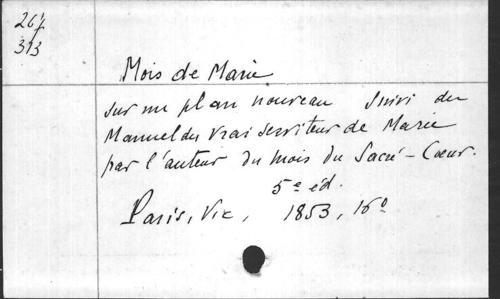 267
313
Mois de Marie
sur un plan nouveau suivi du
Manuel du vrai serviteur de Marie
par l'auteur du mois du Sacré-Cœur.
5e éd.
Paris, Vic, 1853, 16°